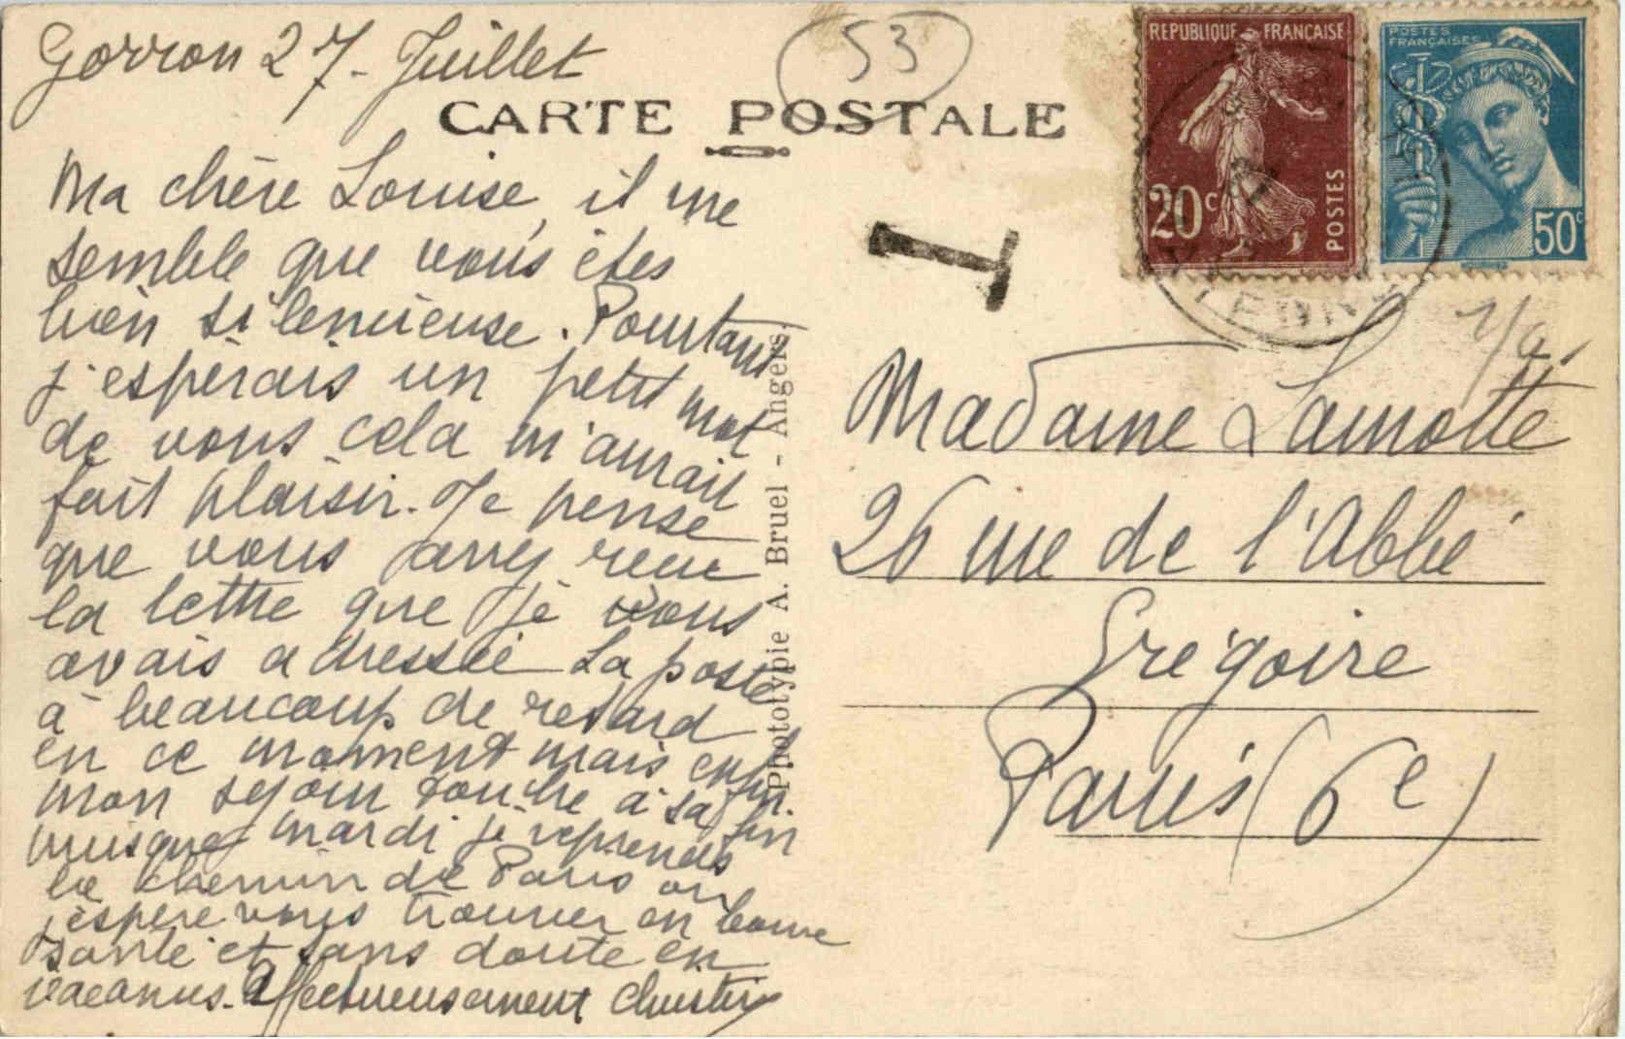 Gorron 27 - Juillet
53
CARTE POSTALE
Ma chère Louise, il me
semble que vous êtes
bien silencieuse. Pourtant
j'espérais un petit mot
de vous cela m'aurait
fait plaisir. Je pense
que vous avez reçu
la lettre que je vous
avais adressée La poste
à beaucoup de retard
en ce moment mais enfin
mon séjour touche à sa fin
puisque mardi je reprends
le chemin de Paris où
j'espère vous trouver en bonne
santé et sans doute en
vacances. Affectueusement
Phototypie A. Bruel - Angers
REPUBLIQUE FRANCAISE
20c
POSTES
POSTES
FRANÇAISES
50c
T
Madame Lamotte
26 rue de l'Abbé
Grégoire
Paris (6e)